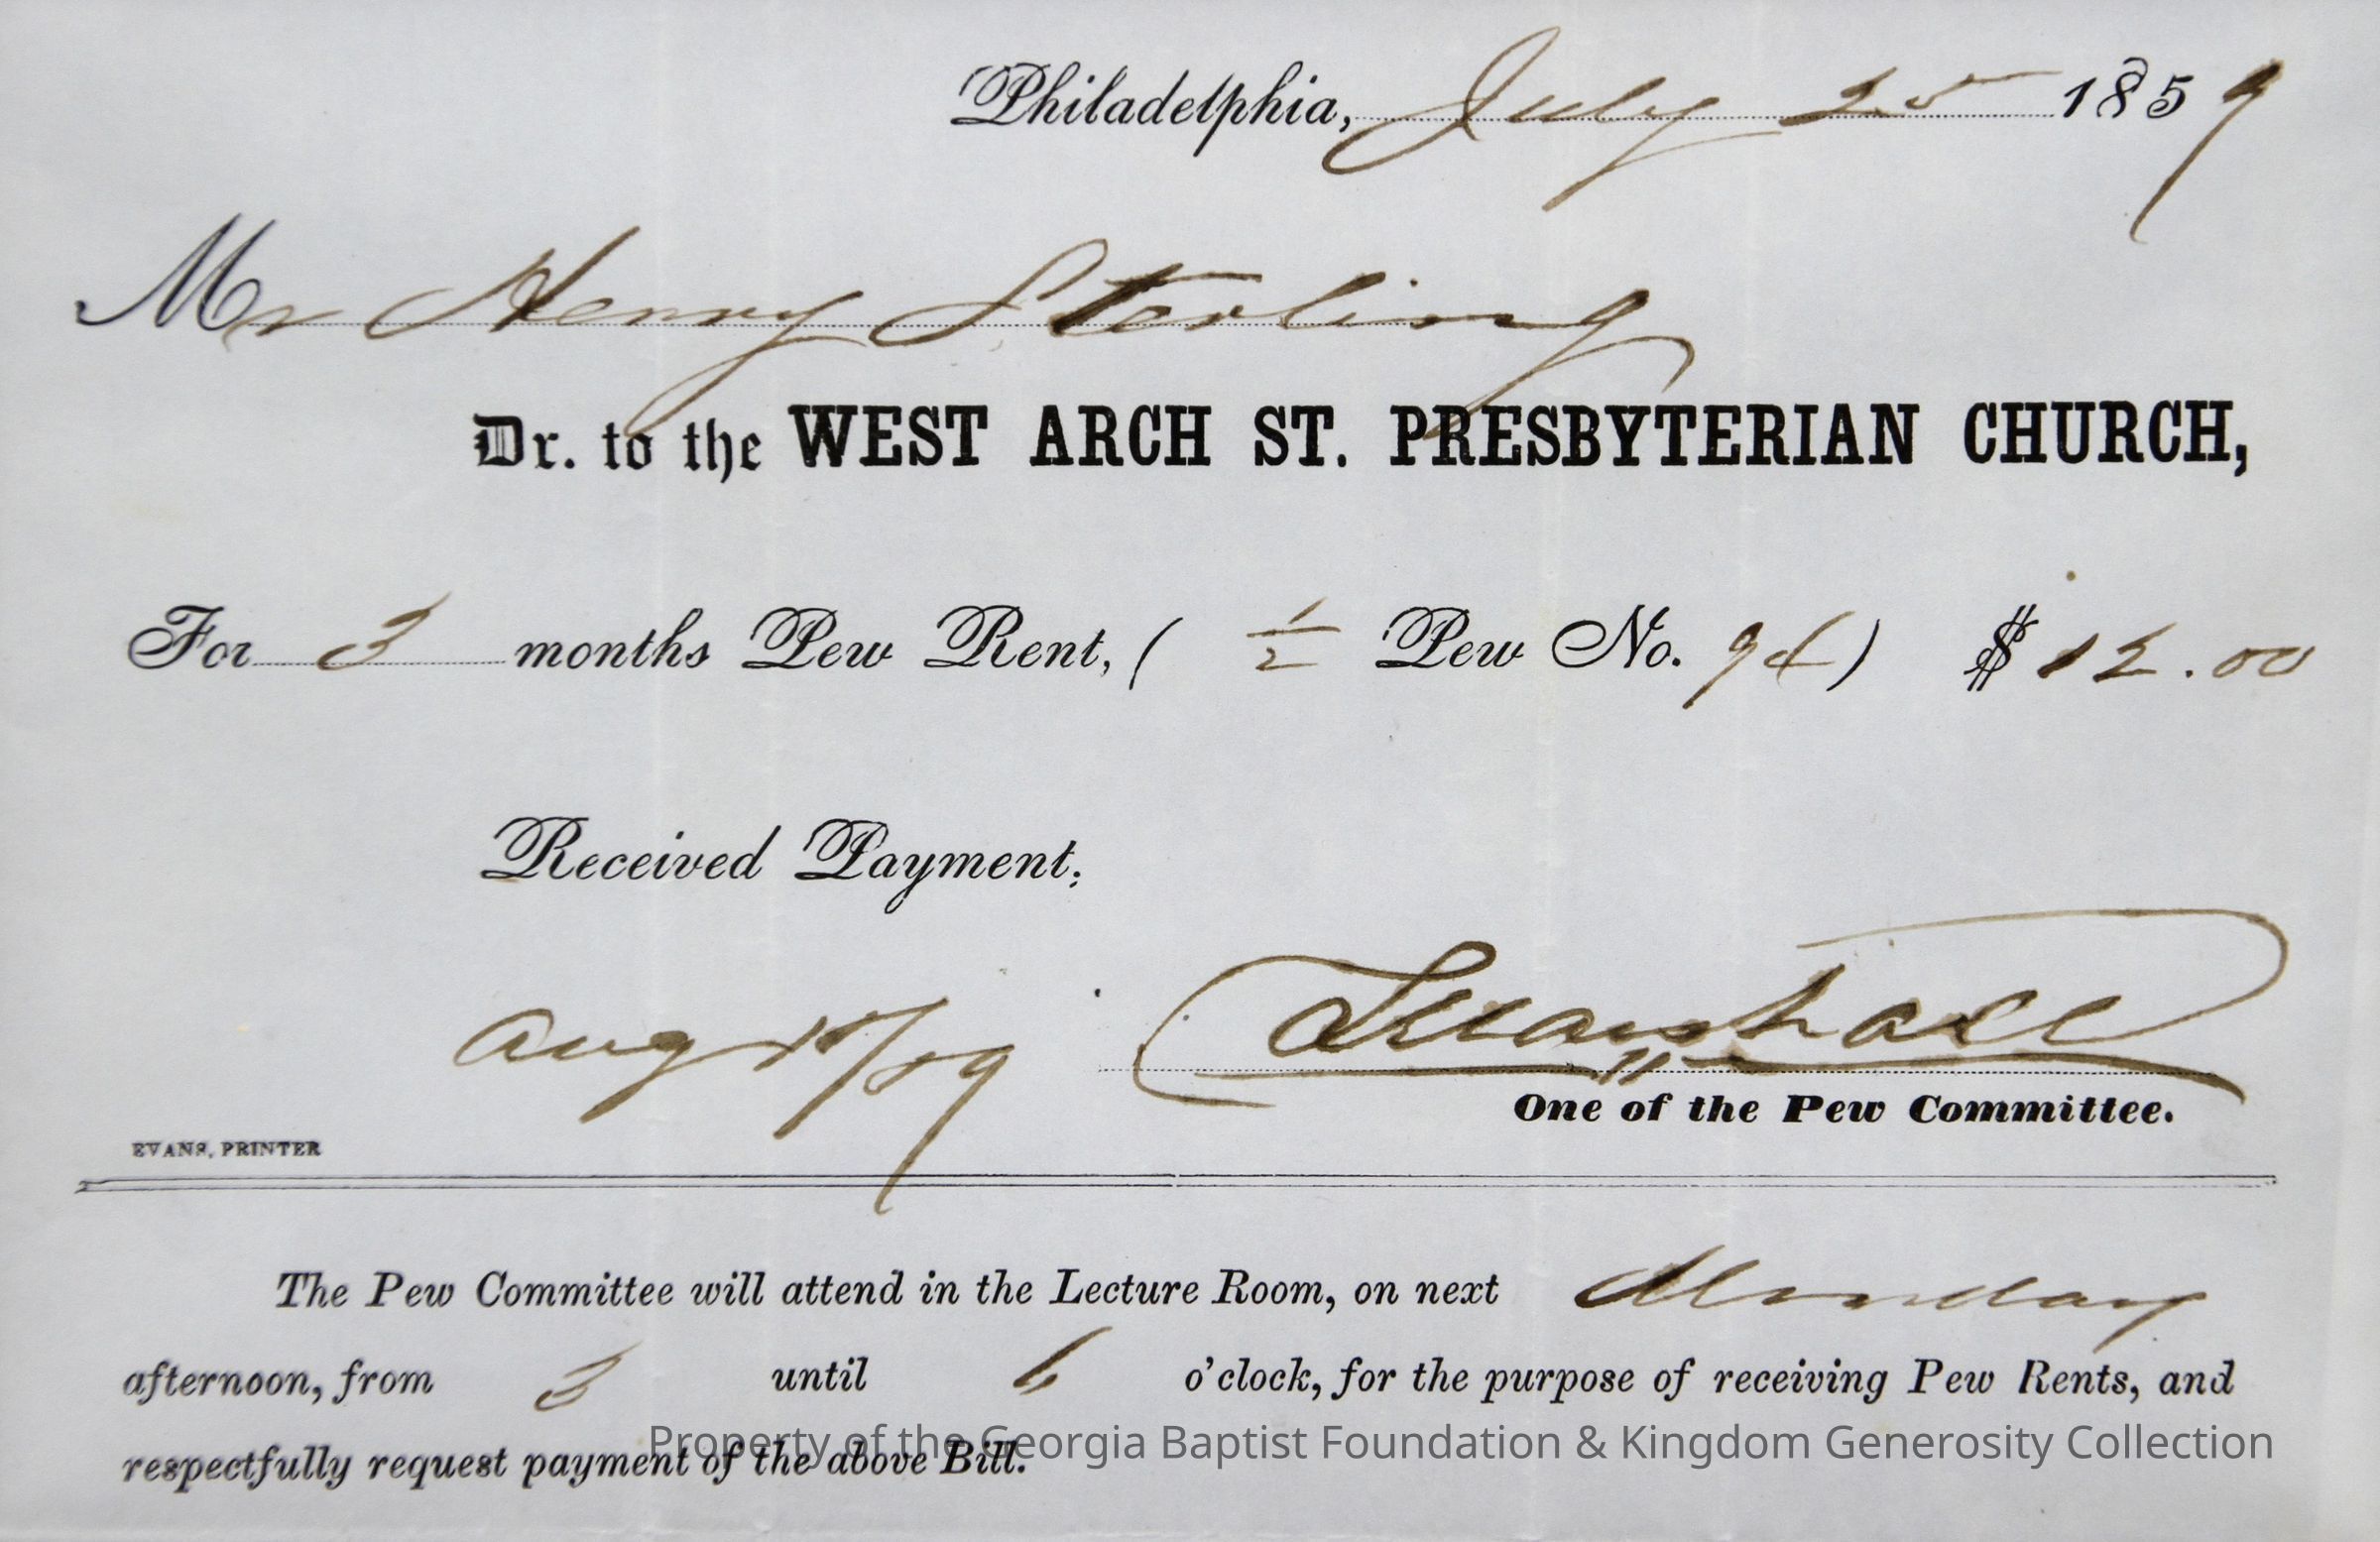 Philadelphia, July 25 1859
Mr Henry Sterling
Dr. to the WEST ARCH ST. PRESBYTERIAN CHURCH,
For 3 months Pew Rent, ( 1/2 Pew No. ) $ 12.00
Received Payment,
Aug /59 Marshall
One of the Pew Committee.
EVANS, PRINTER
The Pew Committee will attend in the Lecture Room, on next Monday
afternoon, from 3 until 6 o'clock, for the purpose of receiving Pew Rents, and
respectfully request payment of the above Bill.
Property of the Georgia Baptist Foundation & Kingdom Generosity Collection